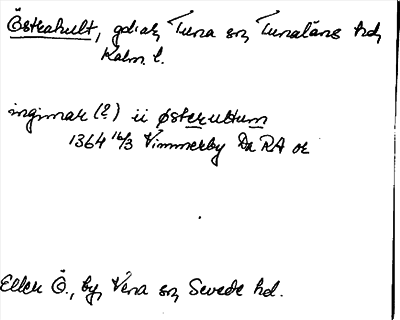 Östrahult, gd:ar, Tuna sn, Tunaläns hd,
Kalm. l.
ingimar (?) ii østerultum
1364 16/3 Vimmerby Da RA or
Eller Ö., by, Vena sn, Sevede hd.